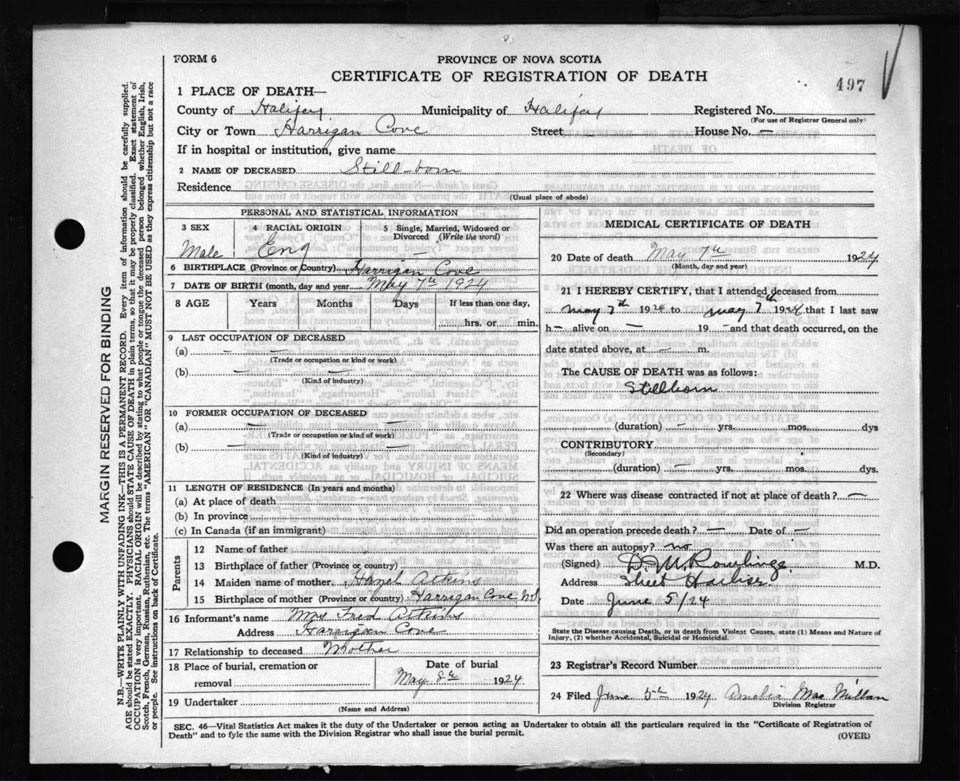 FORM 6
PROVINCE OF NOVA SCOTIA
CERTIFICATE OF REGISTRATION OF DEATH
497
1 PLACE OF DEATH—
County of Halifax Municipality of Halifax Registered No.
(For use of Registrar General only)
City or Town Harrigan Cove Street House No. —
If in hospital or institution, give name
2 NAME OF DECEASED Still-born
Residence
(Usual place of abode)
PERSONAL AND STATISTICAL INFORMATION
3 SEX Male
4 RACIAL ORIGIN Eng
5 Single, Married, Widowed or Divorced (Write the word) —
6 BIRTHPLACE (Province or Country) Harrigan Cove
7 DATE OF BIRTH (month, day and year) May 7th 1924
8 AGE Years Months Days If less than one day,
hrs. or min.
9 LAST OCCUPATION OF DECEASED
(a) — —
(Trade or occupation or kind or work)
(b) —
(Kind of industry)
10 FORMER OCCUPATION OF DECEASED
(a) — —
(Trade or occupation or kind of work)
(b) —
(Kind of industry)
11 LENGTH OF RESIDENCE (In years and months)
(a) At place of death
(b) In province
(c) In Canada (if an immigrant)
Parents
12 Name of father
13 Birthplace of father (Province or Country)
14 Maiden name of mother Hazel Atkins
15 Birthplace of mother (Province or country) Harrigan Cove N.S.
16 Informant's name Mrs Fred Atkins
Address Harrigan Cove
17 Relationship to deceased Mother
18 Place of burial, cremation or removal
Date of burial
May 8th 1924
19 Undertaker
(Name and Address)
MEDICAL CERTIFICATE OF DEATH
20 Date of death May 7th 1924
(Month, day and year)
21 I HEREBY CERTIFY, that I attended deceased from
May 7th 1924 to May 7th 1924 that I last saw
h— alive on — 19 — and that death occurred, on the
date stated above, at — m.
The CAUSE OF DEATH was as follows:
Stillborn
(duration) — yrs. mos. dys
CONTRIBUTORY
(Secondary)
(duration) — yrs. mos. dys.
22 Where was disease contracted if not at place of death? —
Did an operation precede death? — Date of —
Was there an autopsy? no
(Signed) D. M. Rowlings M.D.
Address Sheet Harbor.
Date June 5/24
State the Disease causing Death, or in death from Violent Causes, state (1) Means and Nature of
Injury, (2) whether Accidental, Suicidal or Homicidal.
23 Registrar's Record Number
24 Filed June 5th 1924 Amelia MacMillan
Division Registrar
SEC. 46—Vital Statistics Act makes it the duty of the Undertaker or person acting as Undertaker to obtain all the particulars required in the "Certificate of Registration of
Death" and to fyle the same with the Division Registrar who shall issue the burial permit.
(OVER)
MARGIN RESERVED FOR BINDING
N.B.—WRITE PLAINLY WITH UNFADING INK—THIS IS A PERMANENT RECORD. Every item of information should be carefully supplied.
AGE should be stated EXACTLY. PHYSICIANS should STATE CAUSE OF DEATH in plain terms, so that it may be properly classified. Exact statement of
OCCUPATION is very important. RACIAL ORIGIN will be described by stating to what people or tongue the deceased person belonged whether English, Irish,
Scotch, French, German, Russian, Ruthenian, etc. The terms "AMERICAN" OR "CANADIAN" MUST NOT BE USED as they express citizenship but not a race
or people. See instructions on back of Certificate.